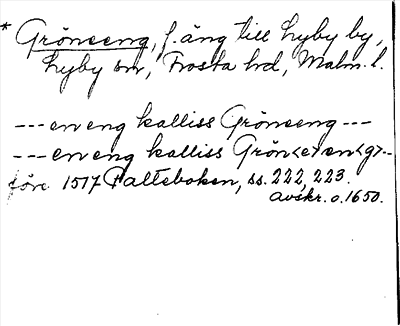 * Gröneeng, f. äng till Hyby by,
Hyby sn, Frosta hd, Malm. l.
--- en eng kalliss Gröneeng ---
--- en eng kalliss Grön<e>en<g>--
före 1517 Palteboken, ss. 222, 223.
avskr. o. 1650.